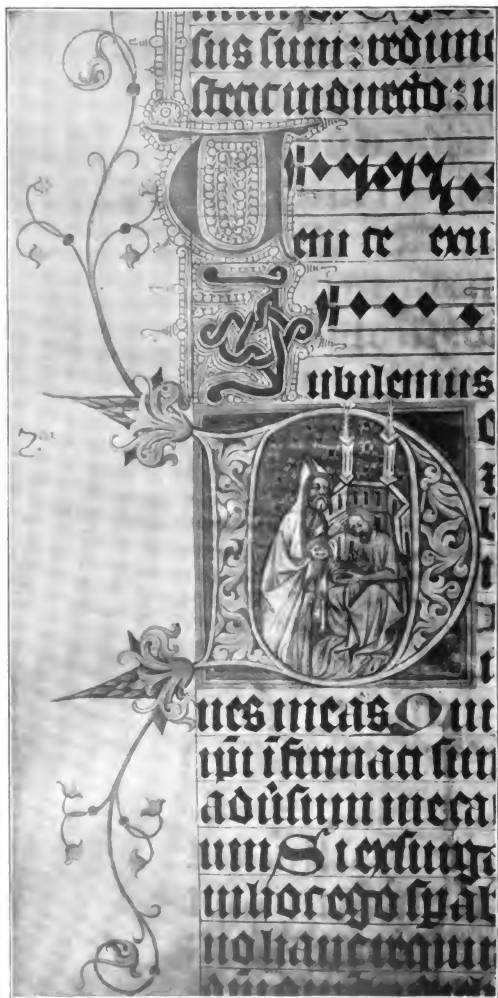 sus sum : redim
stetit in directo : i
Venite exu
Jubilemus
D
nes meas. Qui
ipi ifirmati sun
adusum me ca
um Si exsurga
in hoc ego spab
no hanc requir